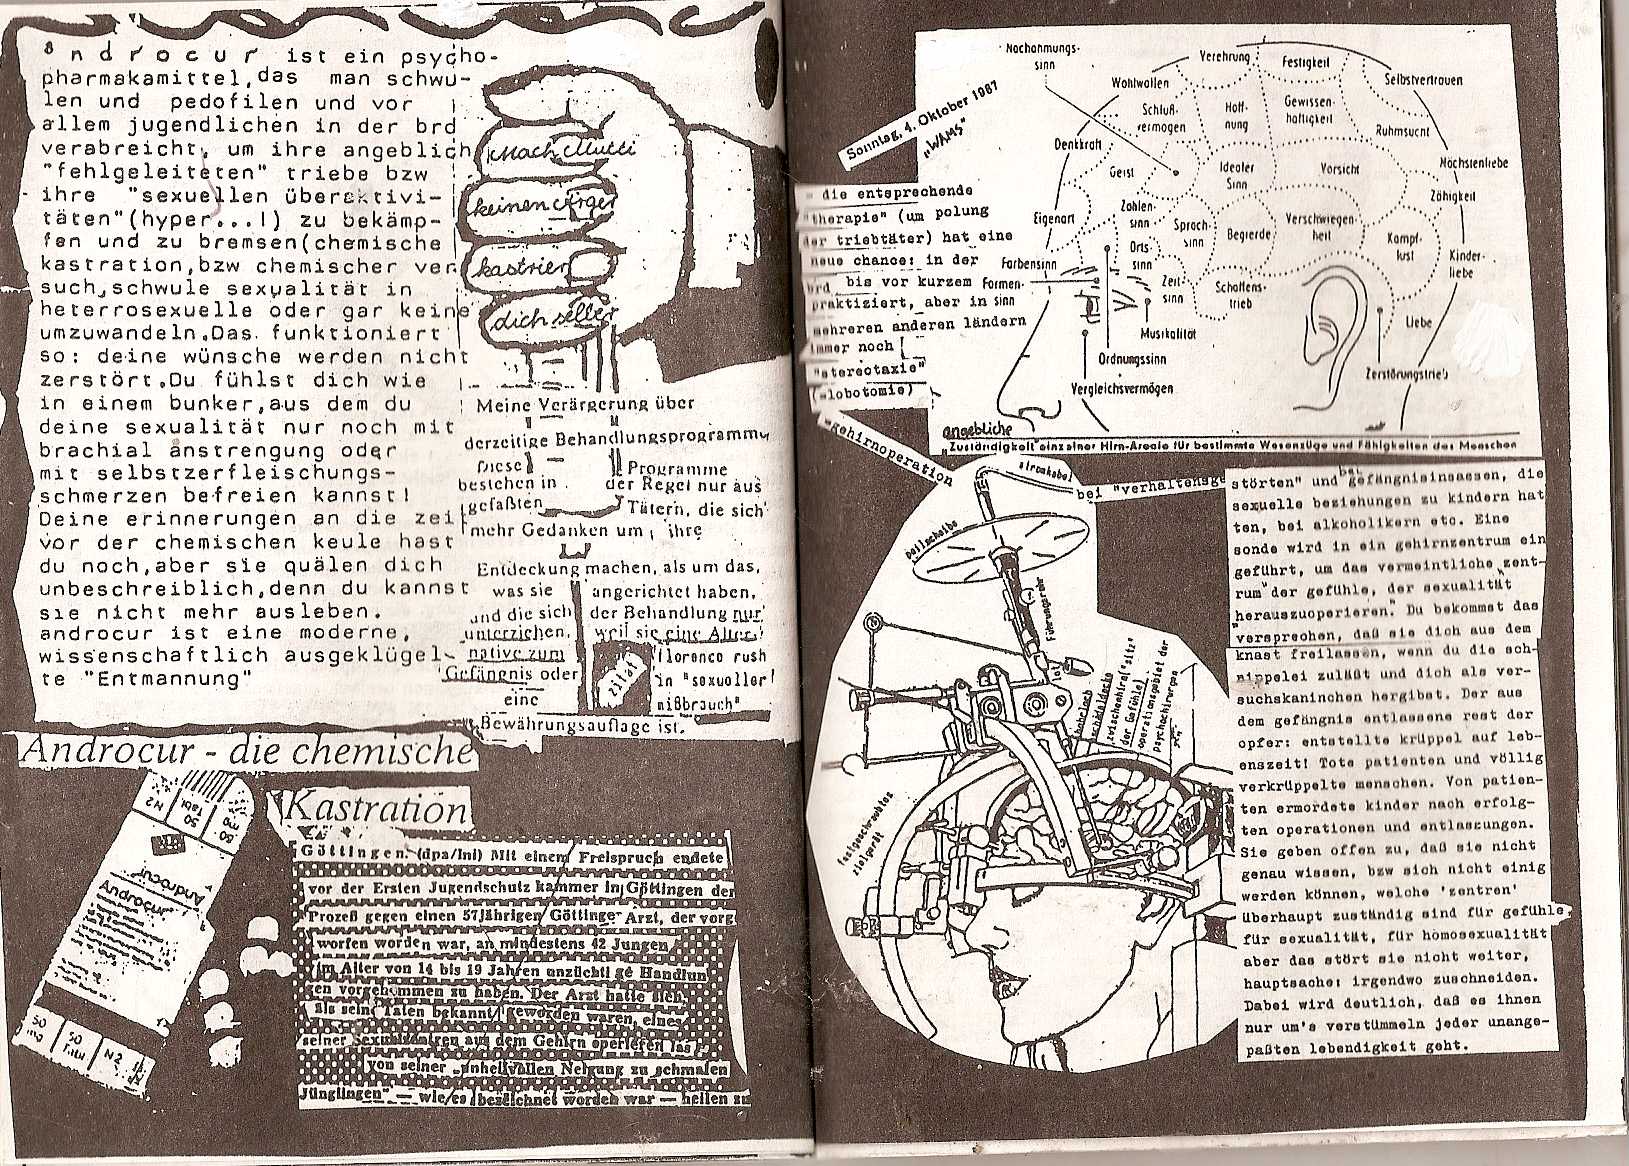 androcur ist ein psycho-
pharmakamittel,das man schwu-
len und pedofilen und vor
allem jugendlichen in der brd
verabreicht, um ihre angeblich
"fehlgeleiteten" triebe bzw
ihre "sexuellen überaktivi-
täten"(hyper...!) zu bekämp-
fen und zu bremsen(chemische
kastration,bzw chemischer ver
such,schwule sexualität in
heterrosexuelle oder gar keine
umzuwandeln.Das funktioniert
so: deine wünsche werden nicht
zerstört.Du fühlst dich wie
in einem bunker,aus dem du
deine sexualität nur noch mit
brachial anstrengung oder
mit selbstzerfleischungs-
schmerzen befreien kannst!
Deine erinnerungen an die zei
vor der chemischen keule hast
du noch,aber sie quälen dich
unbeschreiblich,denn du kannst
sie nicht mehr ausleben.
androcur ist eine moderne,
wissenschaftlich ausgeklügel-
te "Entmannung"
Mach Mutti
keinen Ärger
kastrier
dich selber
Meine Verärgerung über
derzeitige Behandlungsprogramme
Diese Programme
bestehen in der Regel nur aus
gefaßten Tätern, die sich
mehr Gedanken um ihre
Entdeckung machen, als um das,
was sie angerichtet haben,
und die sich der Behandlung nur
unterziehen, weil sie eine Alter-
native zum
Gefängnis oder
eine
Bewährungsauflage ist.
zitat
florence rush
in "sexueller
mißbrauch"
Androcur - die chemische
Kastration
50 mg
50 Tabl.
N2
Androcur
Androcur
50 mg
50
N2
Göttingen. (dpa/lni) Mit einem Freispruch endete
vor der Ersten Jugendschutz kammer in Göttingen der
Prozeß gegen einen 57jährigen Göttinge Arzt, der vorg
worfen worden war, an mindestens 42 Jungen
im Alter von 14 bis 19 Jahren unzüchti ge Handlun
gen vorgenommen zu haben. Der Arzt hatte sich,
als sein Taten bekannt geworden waren, eines
seiner Sexualzentren aus dem Gehirn operieren las
von seiner „unheilvollen Neigung zu schmalen
Jünglingen" — wie es bezeichnet worden war — heilen zu
Sonntag, 4. Oktober 1987
„WAMS"
Nachahmungs-
sinn
Wohlwollen
Verehrung
Festigkeit
Selbstvertrauen
Schluß-
vermögen
Hoff-
nung
Gewissen-
haftigkeit
Ruhmsucht
Denkkraft
Geist
Idealer
Sinn
Vorsicht
Nächstenliebe
Zähigkeit
Eigenart
Zahlen-
sinn
Sprach-
sinn
Begierde
Verschwiegen-
heit
Kampf-
lust
Kinder-
liebe
Farbensinn
Orts-
sinn
Zeit-
sinn
Schaffens-
trieb
Formen-
sinn
Musikalität
Liebe
Ordnungssinn
Vergleichsvermögen
Zerstörungstrieb
angebliche
„Zuständigkeit" einzelner Hirn-Areale für bestimmte Wesenszüge und Fähigkeiten des Menschen
die entsprechende
"therapie" (um polung
der triebtäter) hat eine
neue chance: in der
brd bis vor kurzem
praktiziert, aber in
mehreren anderen ländern
immer noch!
"stereotaxie"
(=lobotomie)
"gehirnoperation
bei "verhaltensge
störten" und bei gefängnisinsassen, die
sexuelle beziehungen zu kindern hat
ten, bei alkoholikern etc. Eine
sonde wird in ein gehirnzentrum ein
geführt, um das vermeintliche „zent-
rum" der gefühle, der sexualität
herauszuoperieren." Du bekommst das
versprechen, daß sie dich aus dem
knast freilassen, wenn du die sch-
nippelei zuläßt und dich als ver-
suchskaninchen hergibst. Der aus
dem gefängnis entlassene rest der
opfer: entstellte krüppel auf leb-
enszeit! Tote patienten und völlig
verkrüppelte menschen. Von patien-
ten ermordete kinder nach erfolg-
ten operationen und entlassungen.
Sie geben offen zu, daß sie nicht
genau wissen, bzw sich nicht einig
werden können, welche 'zentren'
überhaupt zuständig sind für gefühle,
für sexualität, für homosexualität
aber das stört sie nicht weiter,
hauptsache: irgendwo zuschneiden.
Dabei wird deutlich, daß es ihnen
nur um's verstümmeln jeder unange-
paßten lebendigkeit geht.
stromkabel
peilscheibe
Führungsrohr
schädeldecke
zwischenhirn("sitz
der Gefühle)
operationsgebiet der
psychochirurgen
festgeschraubtes
zielgerät